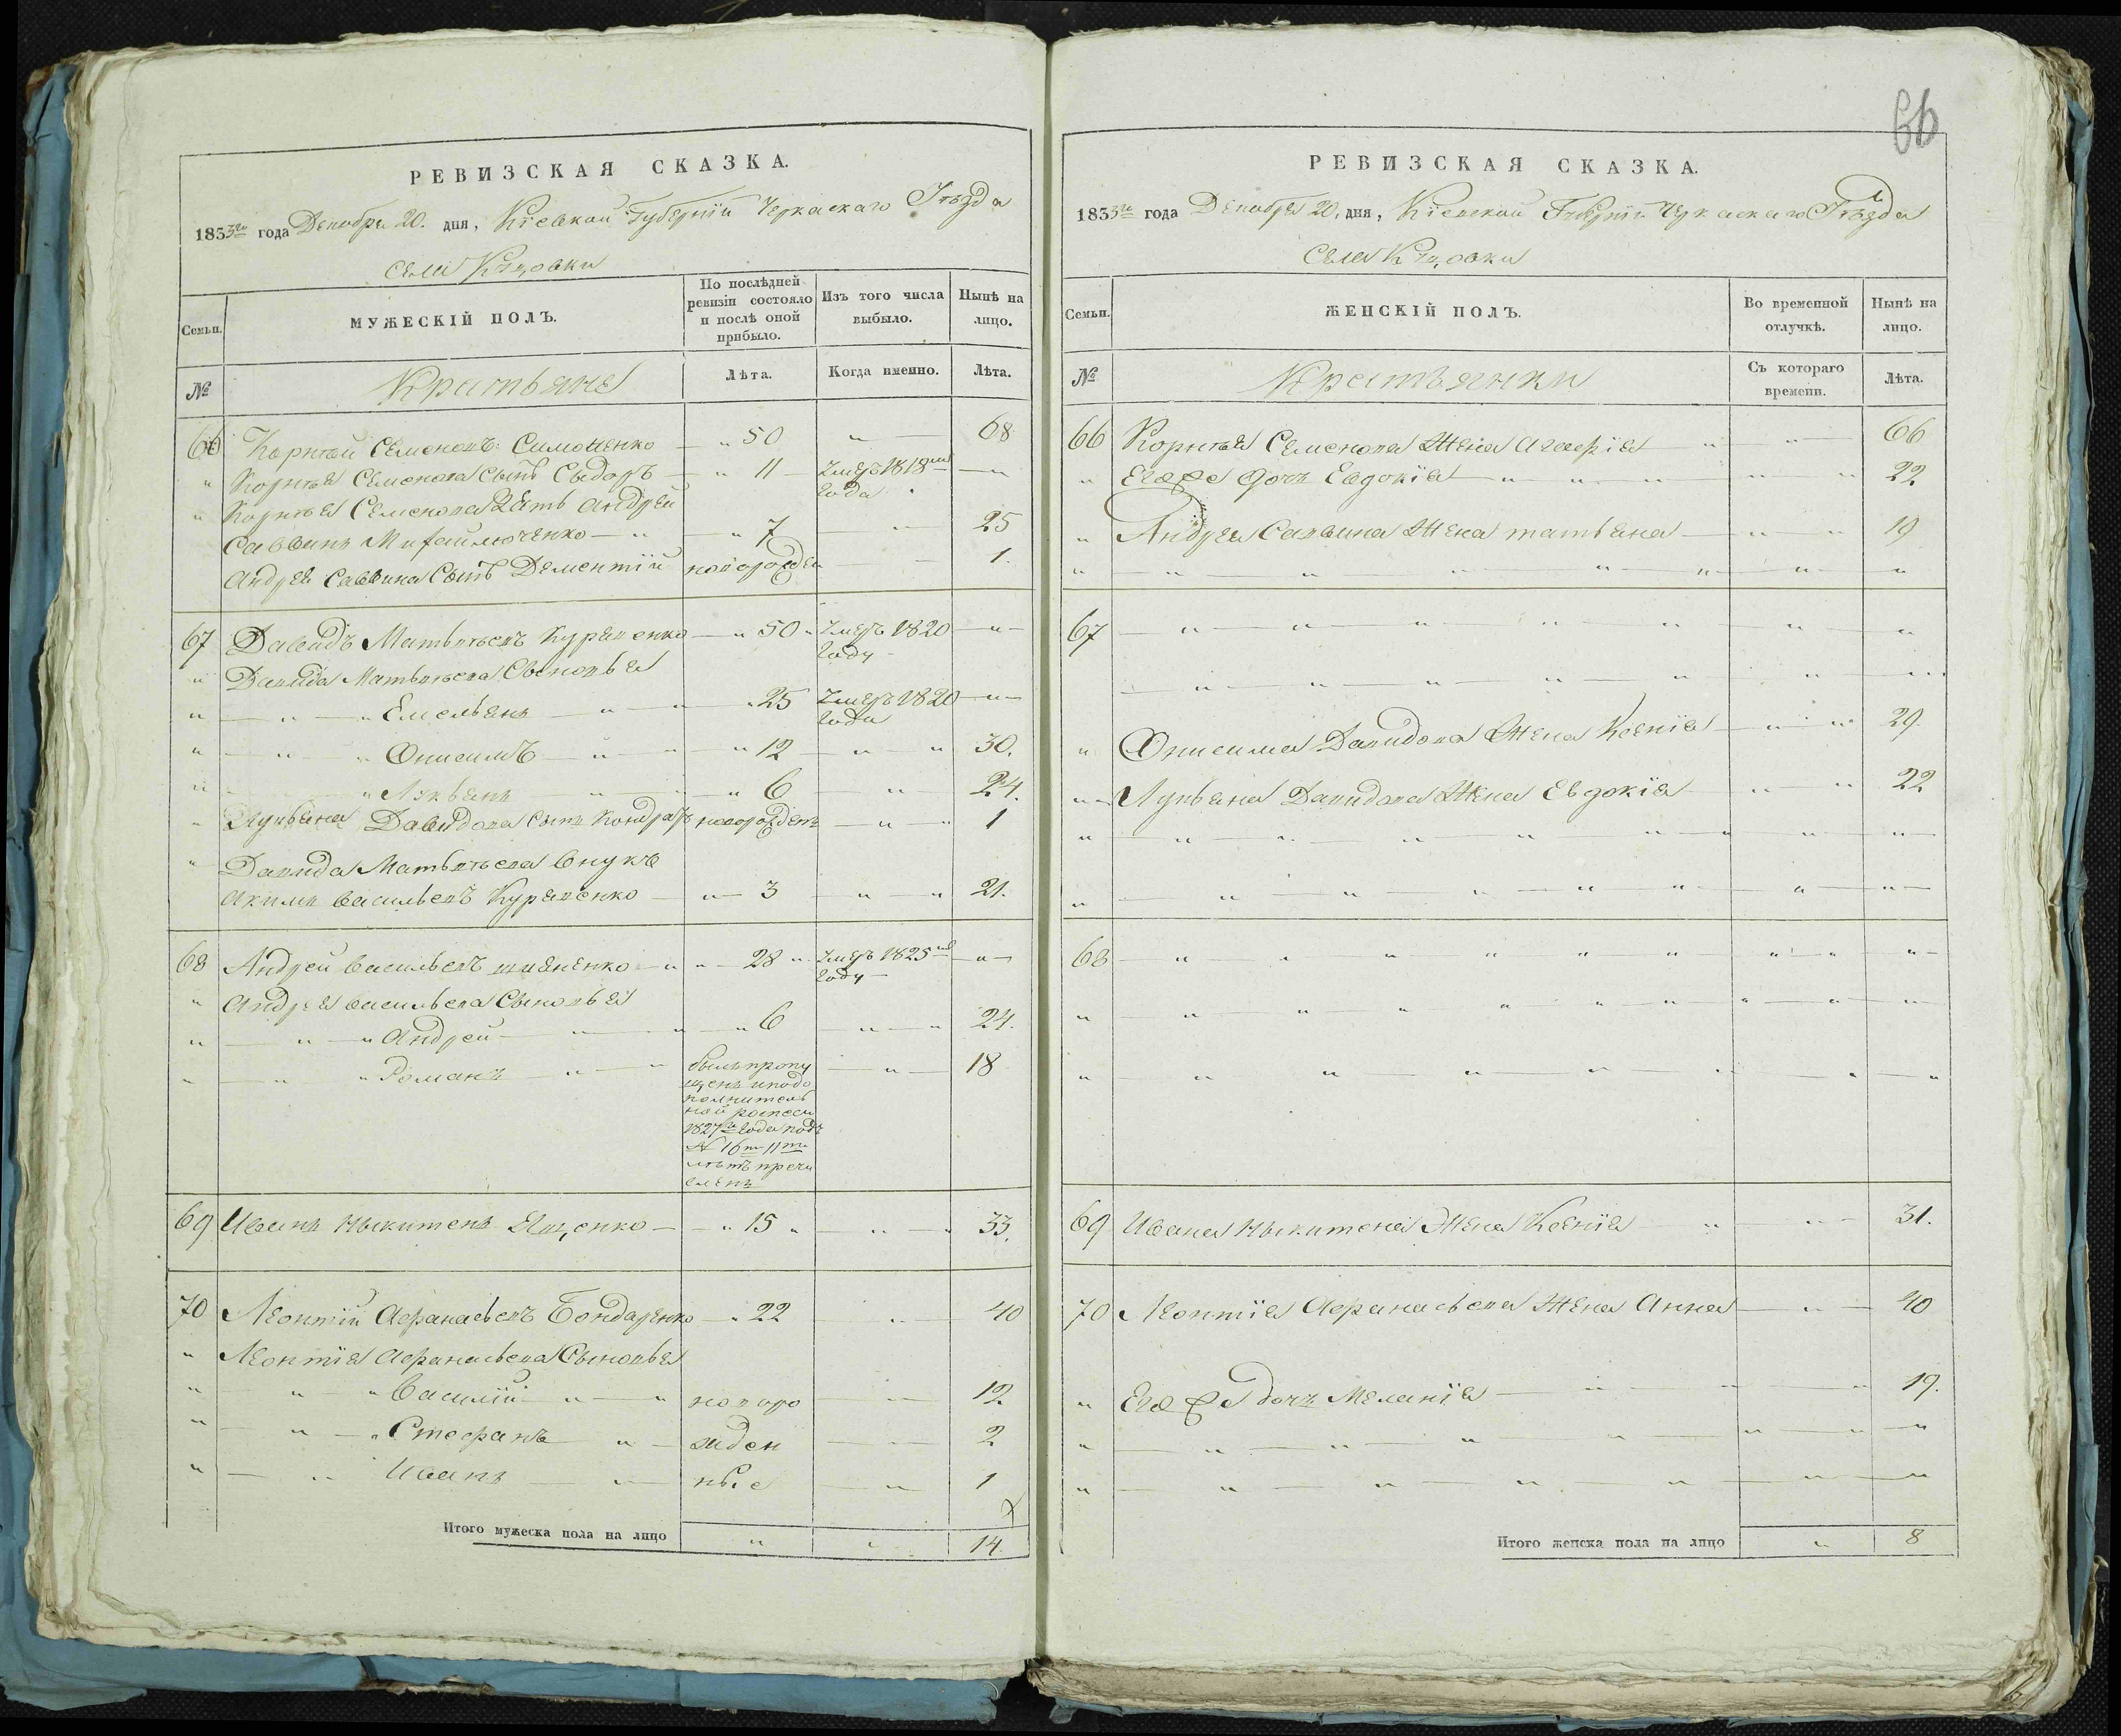 РЕВИЗСКАЯ СКАЗКА.
1833го года Декабря 20. дня, Кіевской Губерніи Черкаскаго Уѣзда
Села Куцовки
Семьи.
МУЖЕСКІЙ ПОЛЪ.
По послѣдней ревизіи состояло и послѣ оной прибыло.
Изъ того числа выбыло.
Нынѣ на лицо.
№
Крестьяне
Лѣта.
Когда именно.
Лѣта.
66 Корнѣй Семеновъ Симоненко — „ 50 „ 68
„ Корнѣя Семенова Сынъ Сыдоръ — „ 11 — Умеръ 1818го —„
года
„ Корнѣя Семенова Зять Андрей
Саввинъ Михайлюченко — „ — „ 7 „ 25
Андрея Саввина Сынъ Дементій новорожден — 1.
67 Давидъ Матвѣевъ Курепенко — „ 50 „ Умеръ 1820 —„—
году
„ Давида Матвѣева Сыновья
„ — „ — „ Емельянъ — „ — „ 25 Умеръ 1820 —„—
года
„ — „ — „ Онисимъ — „ — „ 12 — „ — „ 30.
„ „ Лукьянъ „ „ 6 — „ 24.
„ Лукьяна Давидова Сынъ Кондратъ новорожденъ — „ — „ 1
„ Давида Матвѣева Внукъ
Акимъ Васильевъ Курепенко — „— 3 — „ — „ 21.
68 Андрей Васильевъ — „ — 28 „ Умеръ 1825го —„—
году
„ Андрея Васильева Сыновья
„ — „ — „ Андрей — „ — „ 6 — „ — „ 24.
„ — „ „ Романъ „ — „ былъ пропу — „ — 18
щенъ и по до
полнитель
ной
1827го года подъ
№ 16м 11ти
лѣтъ причи
сленъ
69 Иванъ Ныкитенъ Яценко — — „ 15 „ — „ — „ 33.
70 Леонтій Афанасьевъ Бондаренко — „ 22 — „ — 40
„ Леонтія Афанасьева Сыновья
„ — „ — „ Василій „ — „ новоро — „ — 12.
„ — „ — „ Стефанъ „ — жден — 2
„ — „ Иванъ — „ — ные — „ — 1
Итого мужеска пола на лицо „ „ 14.
66
РЕВИЗСКАЯ СКАЗКА.
1833го года Декабря 20, дня, Кіевской Губерніи Черкаскаго Уѣзда
Села Куцовки
Семьи.
ЖЕНСКІЙ ПОЛЪ.
Во временной отлучкѣ.
Нынѣ на лицо.
№
Крестьянки
Съ котораго времени.
Лѣта.
66 Корнѣя Семенова Жена Агафія „ — „ — 66
„ Его же дочь Евдокія — „ — „ — „ — „ — „ 22
„ Андрея Саввина Жена татьяна — „ — „ 19
„ „ „ „ „ „ „ „
67 — „ — „ — „ — „ — „ „ „
— „ — „ — „ — „ — „ „ —
„ Онисима Давидова Жена Ксенія — „ — „ 29.
„ Лукьяна Давидова Жена Евдокія — „ — „ 22
„ — „ — „ — „ — „ — „ „ — „ —
„ — „ — „ — „ — „ — „ — „ — „ —
68 — „ — „ — „ — „ — „ „ — „ „ —
„ — „ — „ — „ — „ — „ „ — „ „ —
„ „ „ „ „ „ „ — „
69 Ивана Ныкитена Жена Ксенія „ — „ — 31.
70 Леонтія Афанасьева Жена Анна — „ — 40
„ Его же дочь Меланія — „ — „ — „ 19.
„ — „ — „ — „ — „ — „ — „ — „
„ — „ — „ — „ — „ — „ — „
Итого женска пола на лицо „ 8